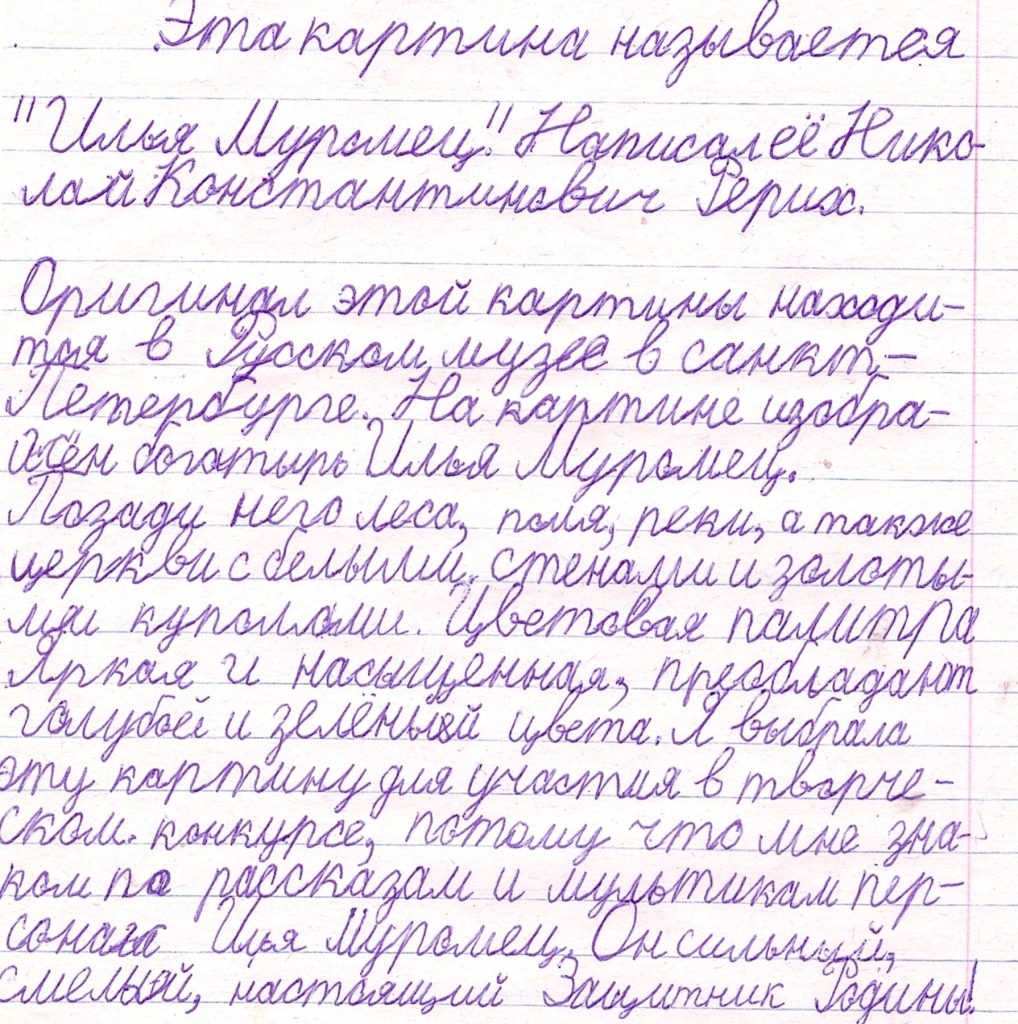 Эта картина называется
"Илья Муромец". Написал её Нико-
лай Константинович Рерих.
Оригинал этой картины находи-
тся в Русском музее в санкт-
Петербурге. На картине изобра-
жён богатырь Илья Муромец.
Позади него леса, поля, реки, а также
церкви с белыми стенами и золоты-
ми куполами. Цветовая палитра
яркая и насыщенная, преобладают
голубой и зелёный цвета. Я выбрала
эту картину для участия в творче-
ском конкурсе, потому что мне зна-
ком по рассказам и мультикам пер-
сонаж Илья Муромец. Он сильный,
смелый, настоящий Защитник Родины!